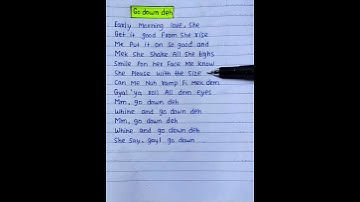 Go down deh
Early Morning love, she
Get it good From She rise
Me Put it on So good and
Mek She Shake All She thighs
Smile Pon her Face Me know
She Please with the Size
Can Me Nuh Ramp Fi Mek dem
Gyal 'ya Roll All dem eyes
Mm, go down deh
Whine and go down deh
Mm, go down deh
Whine and go down deh
She Say, gayl go down